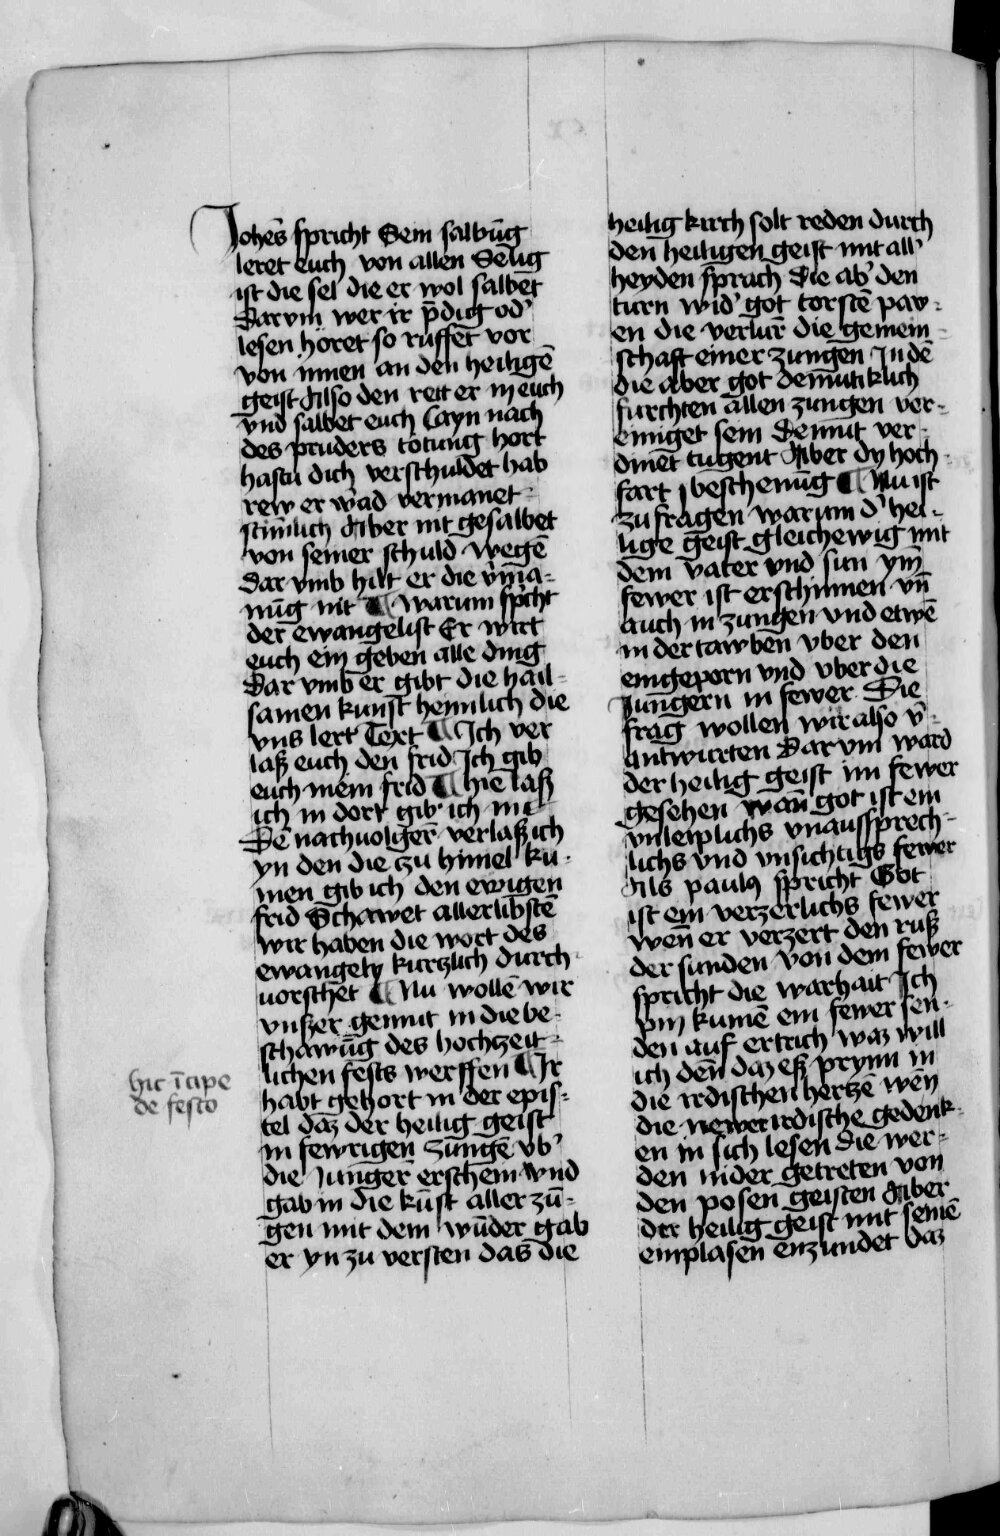 Johēs spricht Sein salbūg
leret euch von allen Selig
ist die sel die er wol salbet
Darvm wer ir p̄dig od'
lesen horet so ruffet vor
von innen an den heiligē
geist Also den rett er in euch
vnd salbet euch Cayn nach
des pruders totung hort
hastu dich verschuldet hab
rew er wad vermanet
stim̄lich Aber nit gesalbet
von seiner schuld wegē
Dar vmb hilt er die v̄ma-
nūg nit ¶ Warum sp̄cht
der ewangelist Er wirt
euch ein geben alle ding
Dar vmb er gibt die hail-
samen kunst heimlich die
vns lert Text ¶ Ich ver
laß euch den frid Ich gib
euch mein frid ¶ hie laß
ich in dort gib ich in
Dē nachuolgerē verlaß ich
yn den die zu himel ku-
men gib ich den ewigen
frid Schawet allerlibstē
wir haben die wort des
ewangely kurtzlich durch-
uorschet ¶ Nu wollē wir
vnßer gemut in die be-
schawūg des hochzeit-
lichen fests werffen ¶ Ir
habt gehort in der epis-
tel daz der heilig geist
in fewrigen zungē vb'
die Jungerē erschein vnd
gab in die kūst aller zū-
gen mit dem wūder gab
er yn zu versten das die
hic īcipe
de festo
heilig kirch solt reden durch
den heiligen geist mit all'
heyden sprach Die ab' den
turn wid' got torstē paw-
en die verlurē die gemein-
schaft einer zungen In dē
die aber got demutiklich
furchten allen zungen ver-
einiget sein Demut ver-
dinet tugent Aber dy hoch-
fart beschemūg ¶ Nu ist
zu fragen warum d' hei-
lige geist gleichewig mit
dem vater vnd sun ym
fewer ist erschinnen vn̄
auch in zungen vnd etwē
in der tawben vber den
eingeporn vnd vber die
Jungern in fewer Die
frag wollen wir also v̄-
antwurten Darvm ward
der heilig geist im fewer
gesehen wan̄ got ist ein
vnleiplichs vnaussprech-
lichs vnd vnsichtigs fewer
Als paulꝰ spricht Got
ist ein verzerlichs fewer
wen̄ er verzert den ruß
der sunden Von dem fewer
spricht die warhait Ich
pin kumē ein fewer sen-
den auf ertrich waz will
ich den̄ daz eß prynn in
die irdischen hertzē wēn
die newer irdische gedenk-
en in sich lesen die wer-
den nider getreten von
den posen geisten Aber
der heilig geist mit seinē
einplasen enzundet daz